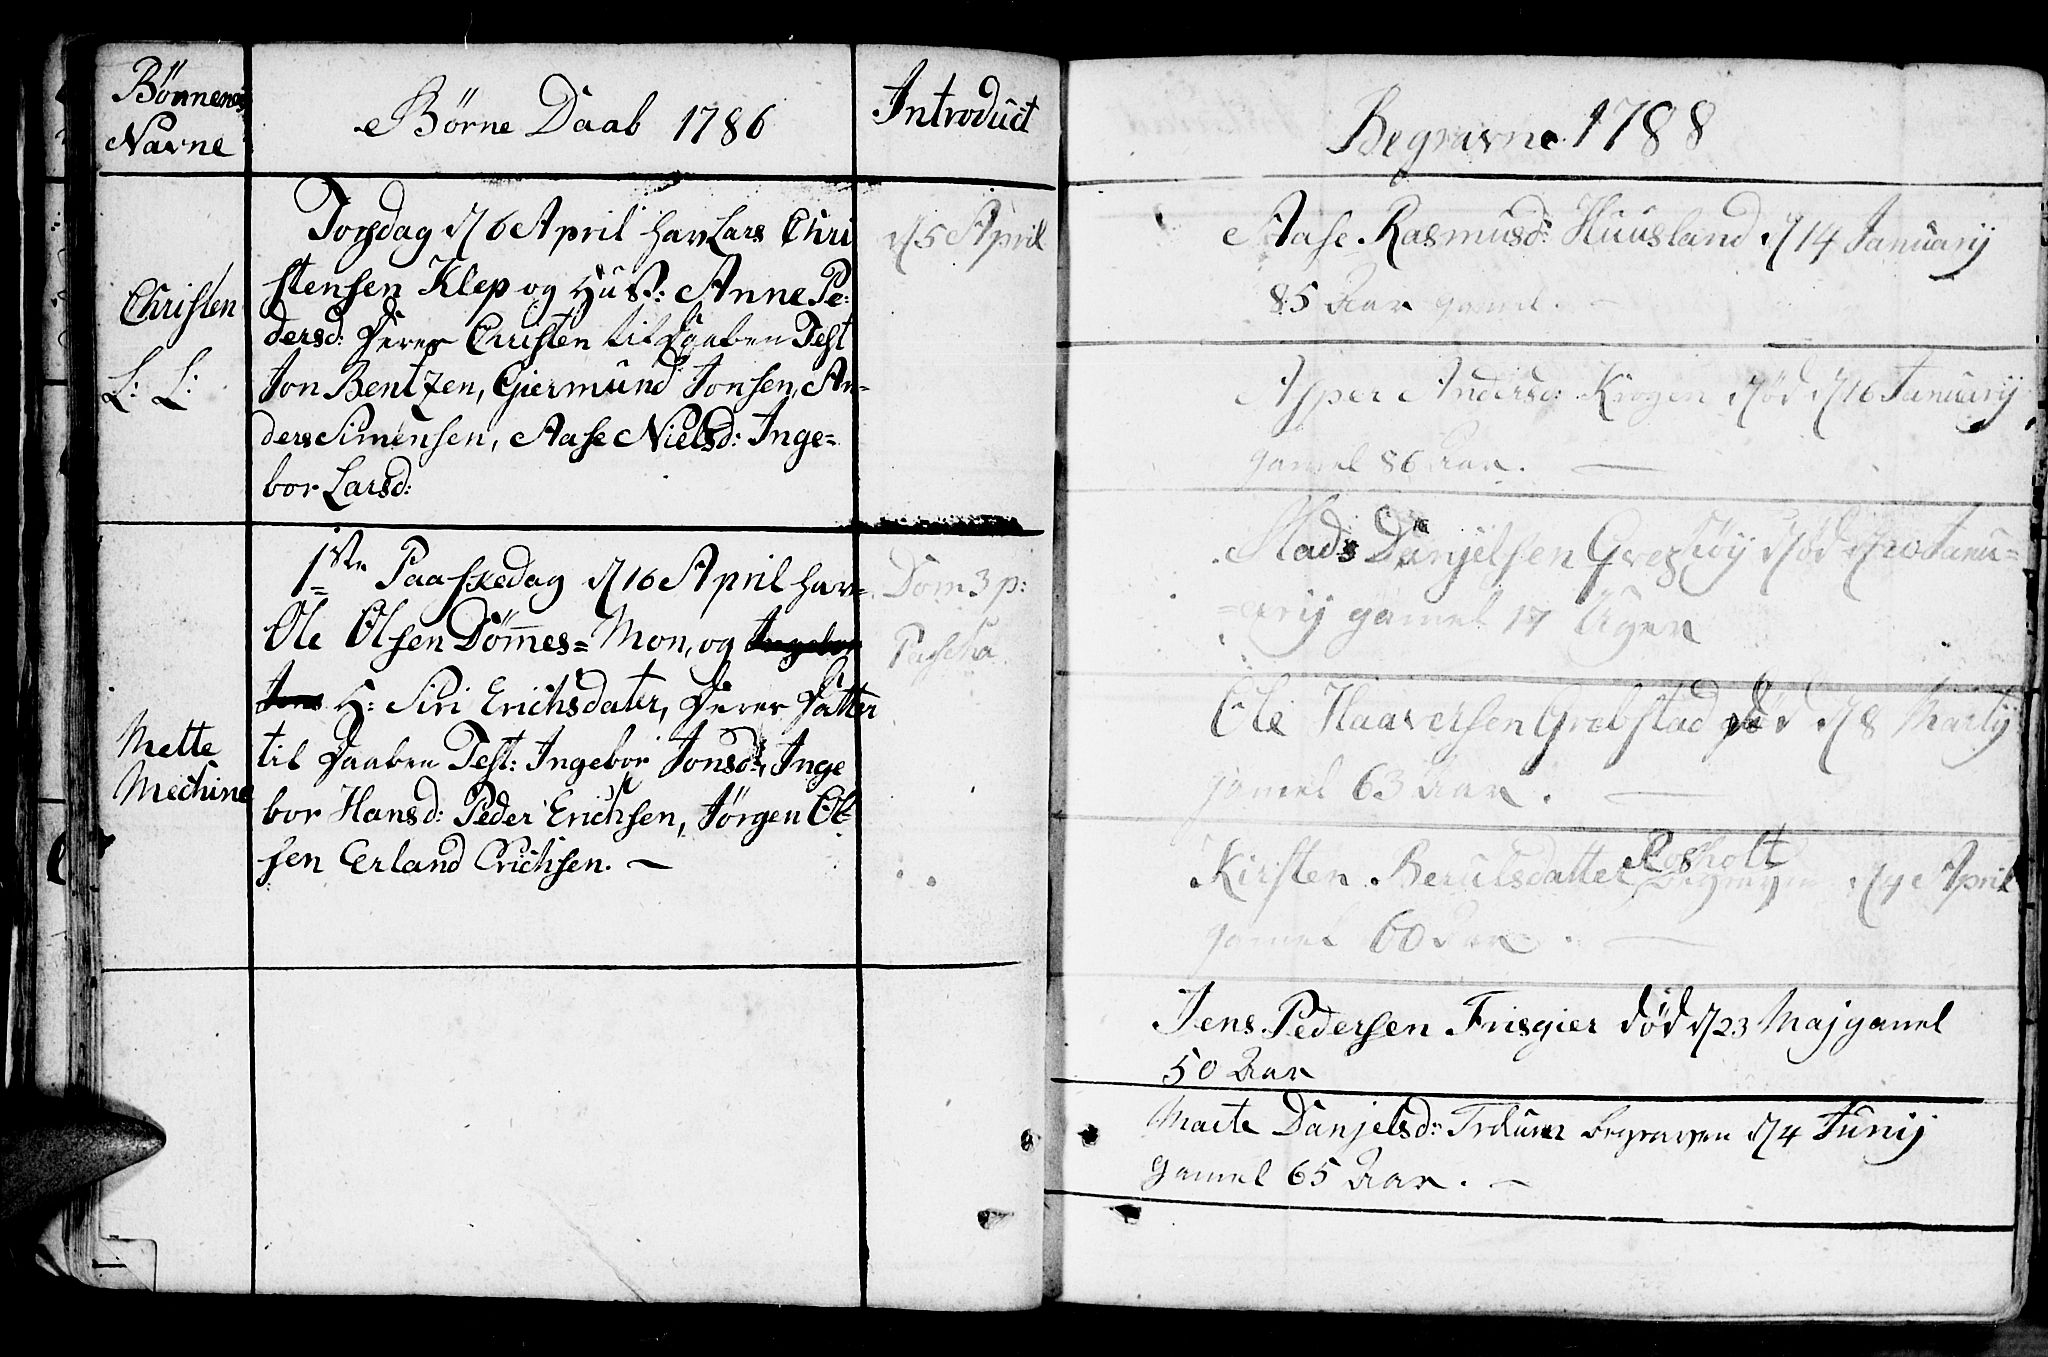 Børnenes
Navne
Børne Daab 1786
Introduct
Christen
L: L:
Torsdag d 6 April har Lars Chri
stensen Klep og Hus: Anne Pe:
dersd: Deres Christen til Daaben Test
Jon Bentzen, Giermund Jonsen, An=
ders Simensen, Aase Nielsd: Inge=
bor Larsd:
d 5 April
Mette
Mechine
1ste Paaskedag d 16 April har
Ole Olsen Dømmes= Mon, og Ingebor
Jons H: Siri Erichsdater, Deres Datter
til Daaben Test: Ingebor Jonsd:, Inge
bor Hansd: Peder Erichsen, Jørgen Ol
sen Erland Erichsen. —
Dom 3 p:
Pascha
Begravne 1788
Aase Rasmusd: Huusland d 14 Januarij
85 Aar gamel. —
Asper Andersd: Krogen død d 16 Januarij
gamel 86 Aar. —
Mads Danjelsen død d 20 Janu=
=arij gamel 17 Uger
Ole Haaversen Grebstad død d 8 Martij
gamel 63 Aar. —
Kirsten Berulsdatter Rosholt begraven d 4 April
gamel 60 Aar. —
Jens Pedersen Frisgier død d 23 Maj gamel
50 Aar
Marte Danjelsd: begraven d 4 Junij
gamel 65 Aar. —